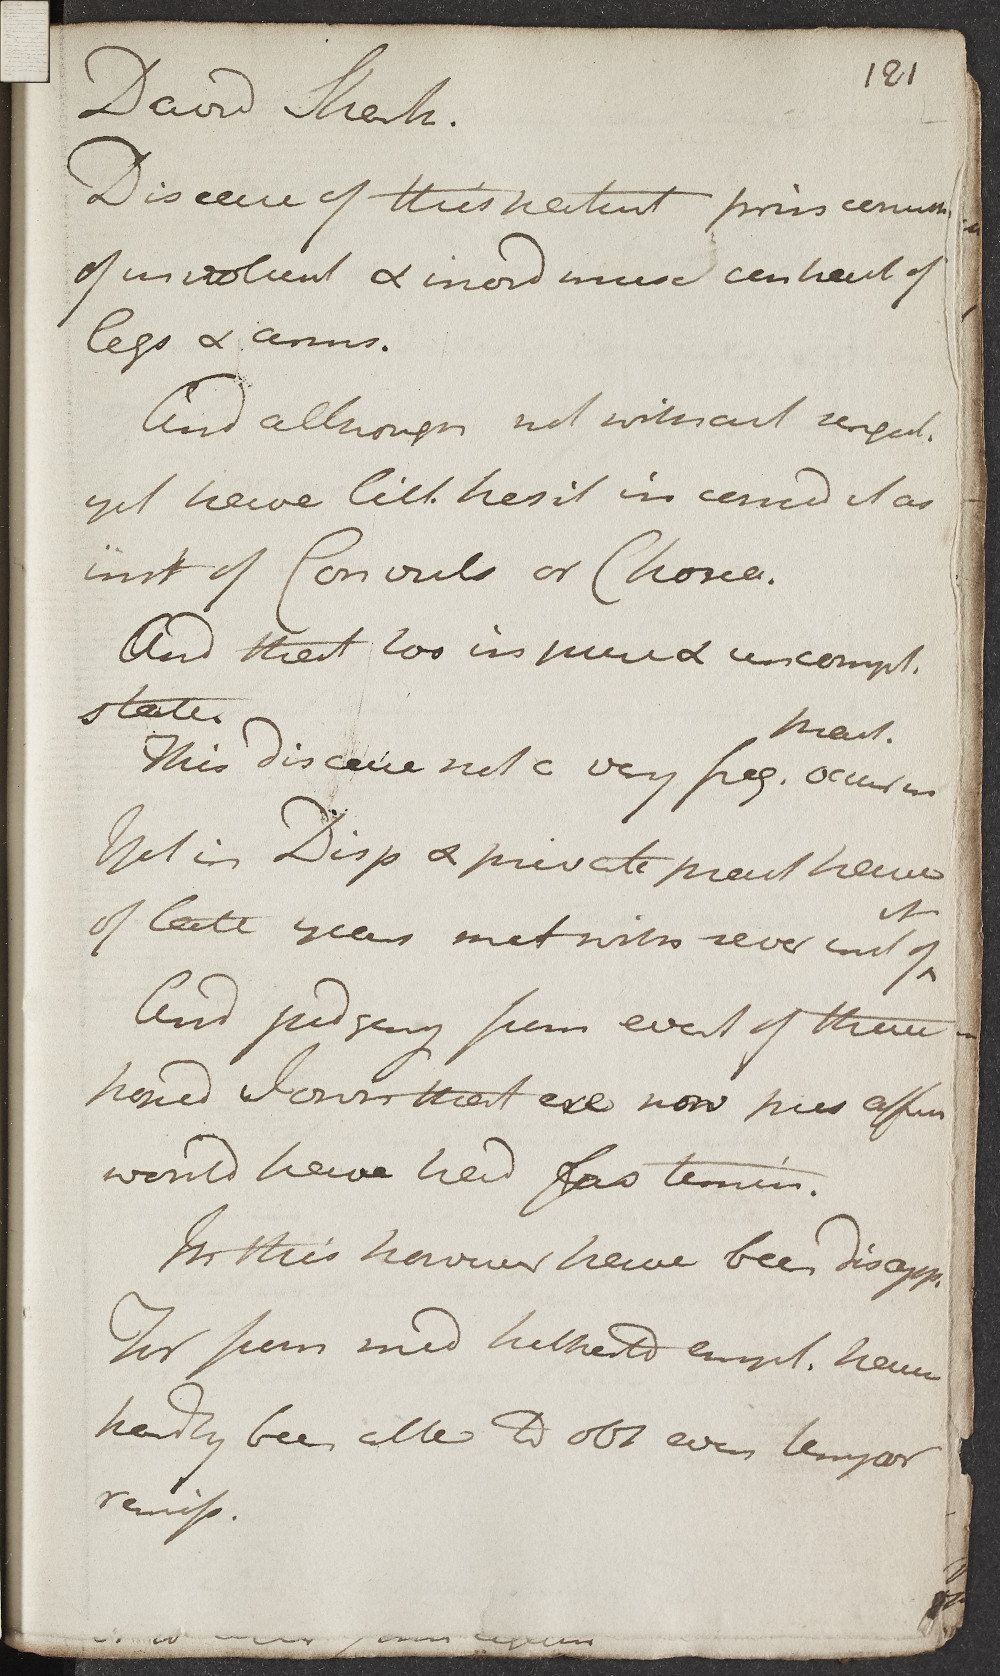 121
David Shenk.
Disease of this patient princ
of involunt & inord musc of
legs & arms.
And although not without
yet have litt. hesit in consid it as
inst of Convuls or Chorea.
And that too in pure & uncompl.
state.
pract.
This disease not a very freq. occur in
Yet in Disp & private pract have
of late years met with sever inst of
it
And judging from event of these
hoped I own that ere now pres affect
would have had fav termin.
In this however have been disapp.
For from med hitherto empl. have
hardly been able to obt even tempor
remiss.